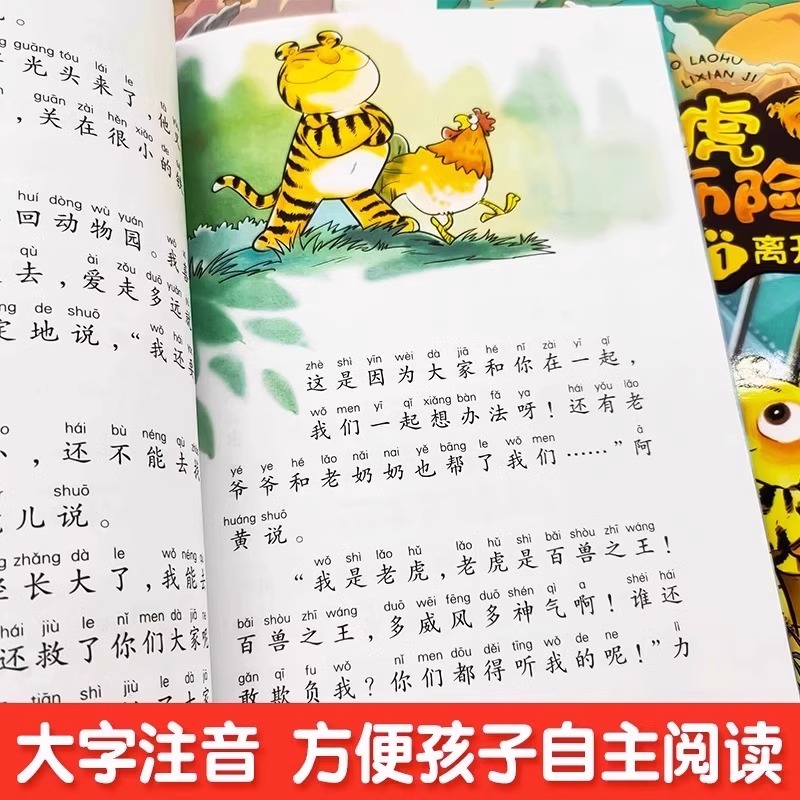 guāng tóu lái le
光头来了，他
guān zài hěn xiǎo de
，关在很小的
huí dòng wù yuán wǒ
回动物园。我
qù ài zǒu duō yuǎn
去，爱走多远
de shuō wǒ hái
定地说，“我还要
hái bù néng qù
小，还不能去
shuō
儿说。
zhǎng dà le wǒ néng
长大了，我能去
hái jiù le nǐ men dà jiā
还救了你们大家呢
tiān shì jiù le dà jiā
zhè shì yīn wèi dà jiā hé nǐ zài yī qǐ
这是因为大家和你在一起，
wǒ men yī qǐ xiǎng bàn fǎ ya hái yǒu lǎo
我们一起想办法呀！还有老
yé ye hé lǎo nǎi nai yě bāng le wǒ men ā
爷爷和老奶奶也帮了我们……”阿
huáng shuō
黄说。
wǒ shì lǎo hǔ lǎo hǔ shì bǎi shòu zhī wáng
“我是老虎，老虎是百兽之王！
bǎi shòu zhī wáng duō wēi fēng duō shén qì a shéi hái
百兽之王，多威风多神气啊！谁还
gǎn qī fu wǒ nǐ men dōu děi tīng wǒ de ne lì
敢欺负我？你们都得听我的呢！”力
LAOHU
LIXIAN JI
虎
历险
1 离开
大字注音 方便孩子自主阅读